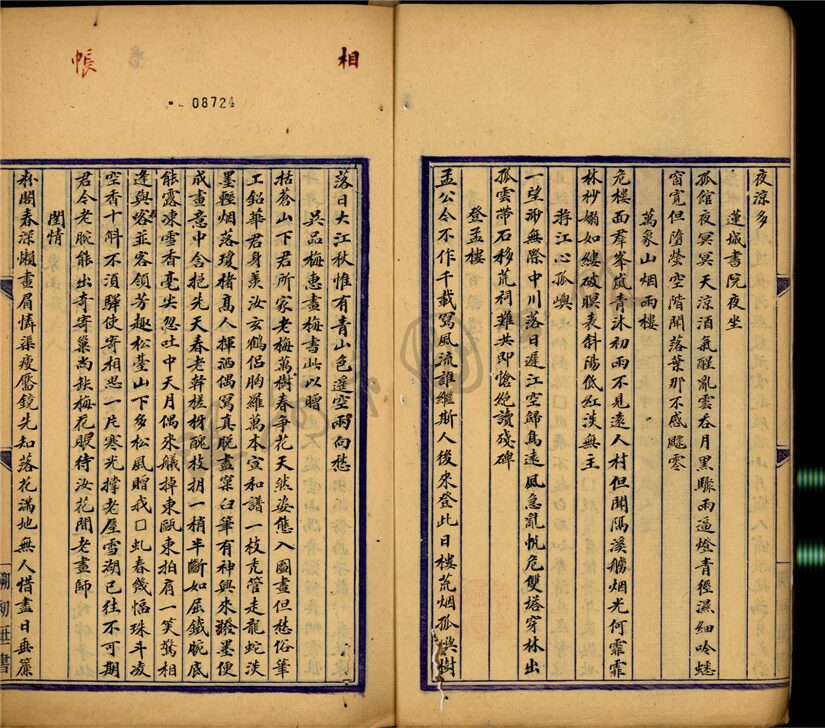 相
夜涼多
蓮城書院夜坐
孤館夜冥冥天涼酒氣醒亂雲吞月黑驟雨逼燈青徑濕細吟蟋
窗寬但墮螢空階聞落葉那不感飄零
萬象山烟雨樓
危樓面羣峯嵐青沐初雨不見遠人村但聞隔溪艣烟光何霏霏
林杪嫋如縷破瞑表斜陽低紅淡無主
蒋江心孤嶼
一望渺無際中川落日遲江空歸鳥遠風急亂帆危雙塔穿林出
孤雲帶石移荒祠難共即愴絶讀殘碑
登孟樓
孟公今不作千載寫風流誰繼斯人後來登此日樓荒烟孤嶼樹
帳
08724
落日大江秋惟有青山色遥空兩向愁
吳品梅惠畫梅書此以贈
括蒼山下君所家老梅萬樹春爭花天然姿態入圖畫但愁俗筆
工鉛華君身羨汝玄鶴侣胸羅萬本宣和譜一枝禿管走龍蛇淡
墨輕烟落瓊楮高人揮洒偶寫真脱盡窠臼筆有神興來潑墨便
成畫意中含抱先天春老幹槎枒醜枝拐一梢半斷如屈鐵腕底
能露凍雪香毫尖忽吐中天月偶來艤掉東甌東拍肩一笑驚相
逢與
並容領芳趣松臺山下多松風贈我口虬春幾幅珠斗凌
空香十斛不須驛使寄相思一片寒光撑老屋雪湖已往不可期
君今老腕能出奇寄巢尚缺梅花眼待汝花間老畫師
閨情
粉閣春深懶畫眉憐渠瘦靨鏡先知落花滿地無人惜盡日垂簾